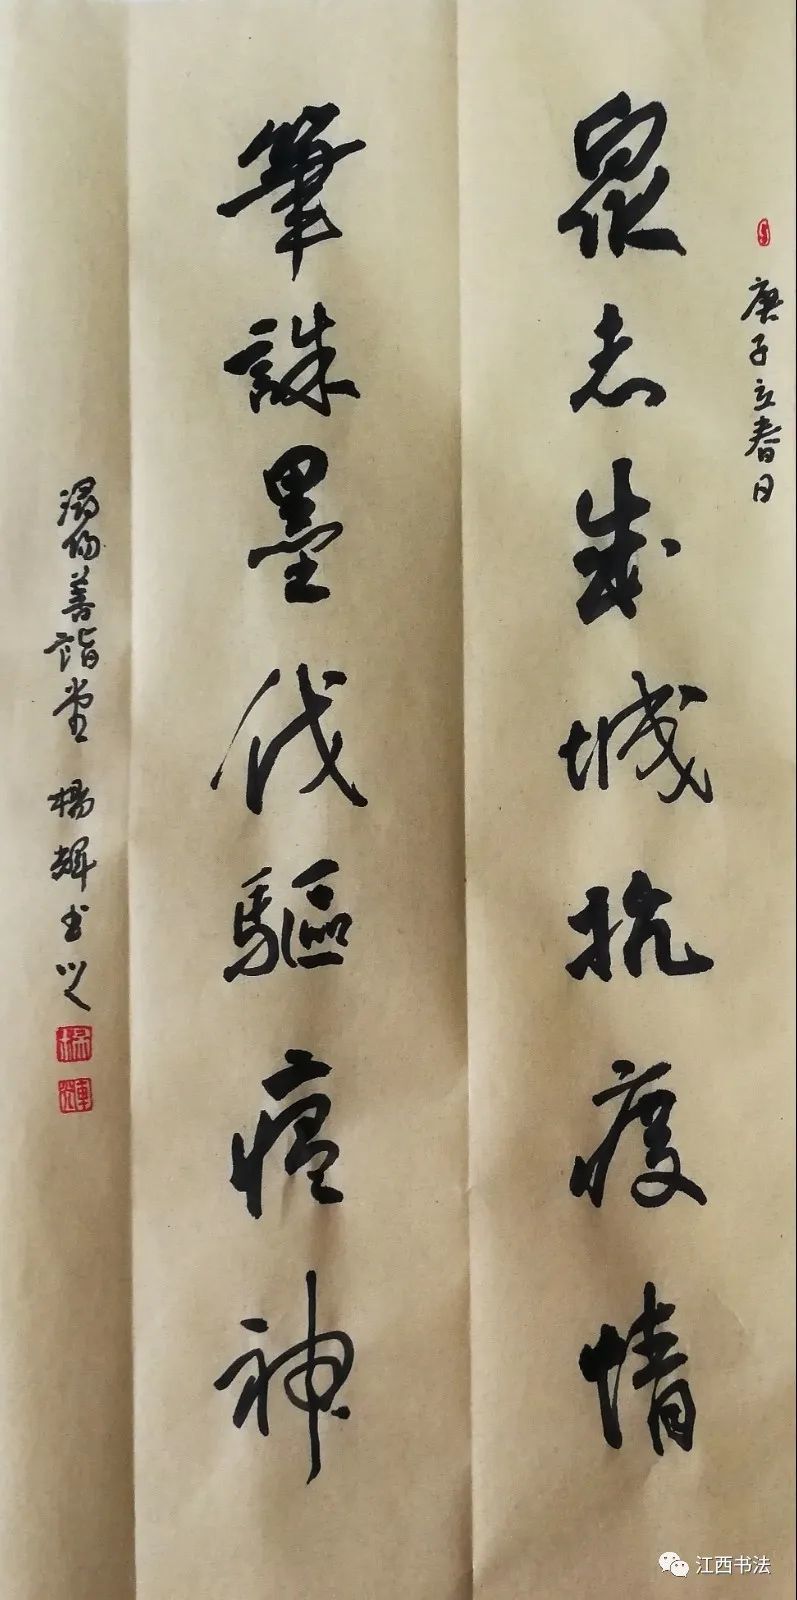 庚子立春日
眾志成城抗疫情
筆誅墨伐驅瘟神
善詣堂 楊輝書
江西书法